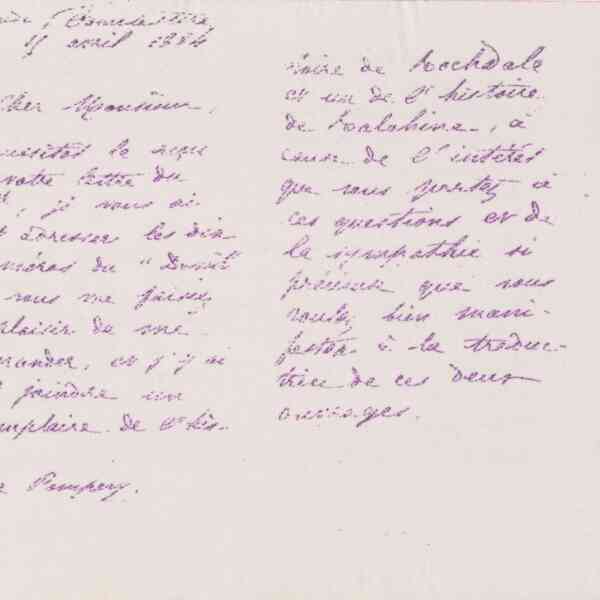 avril 1884
Cher Monsieur,
le reçu
votre lettre du
je vous ai
adresser les dix
méros du "Devoir"
vous me faisiez
plaisir de me
mander, et j'y ai
joindre un
emplaire de l'his-
Pompery.
toire de Rochdale
et un de l'histoire
de Ralahine, à
cause de l'intérêt
que vous portez à
ces questions et de
la sympathie si
précieuse que vous
voulez bien mani-
fester à la traduc-
trice de ces deux
ouvrages.